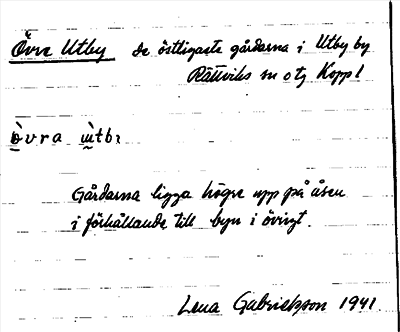 Övre Utby de östligaste gårdarna i Utby by
Rättviks sn o tg Koppl
òvra ùtbɩ
Gårdarna ligga högre upp på åsen
i förhållande till byn i övrigt.
Lena Gabrielsson 1941.